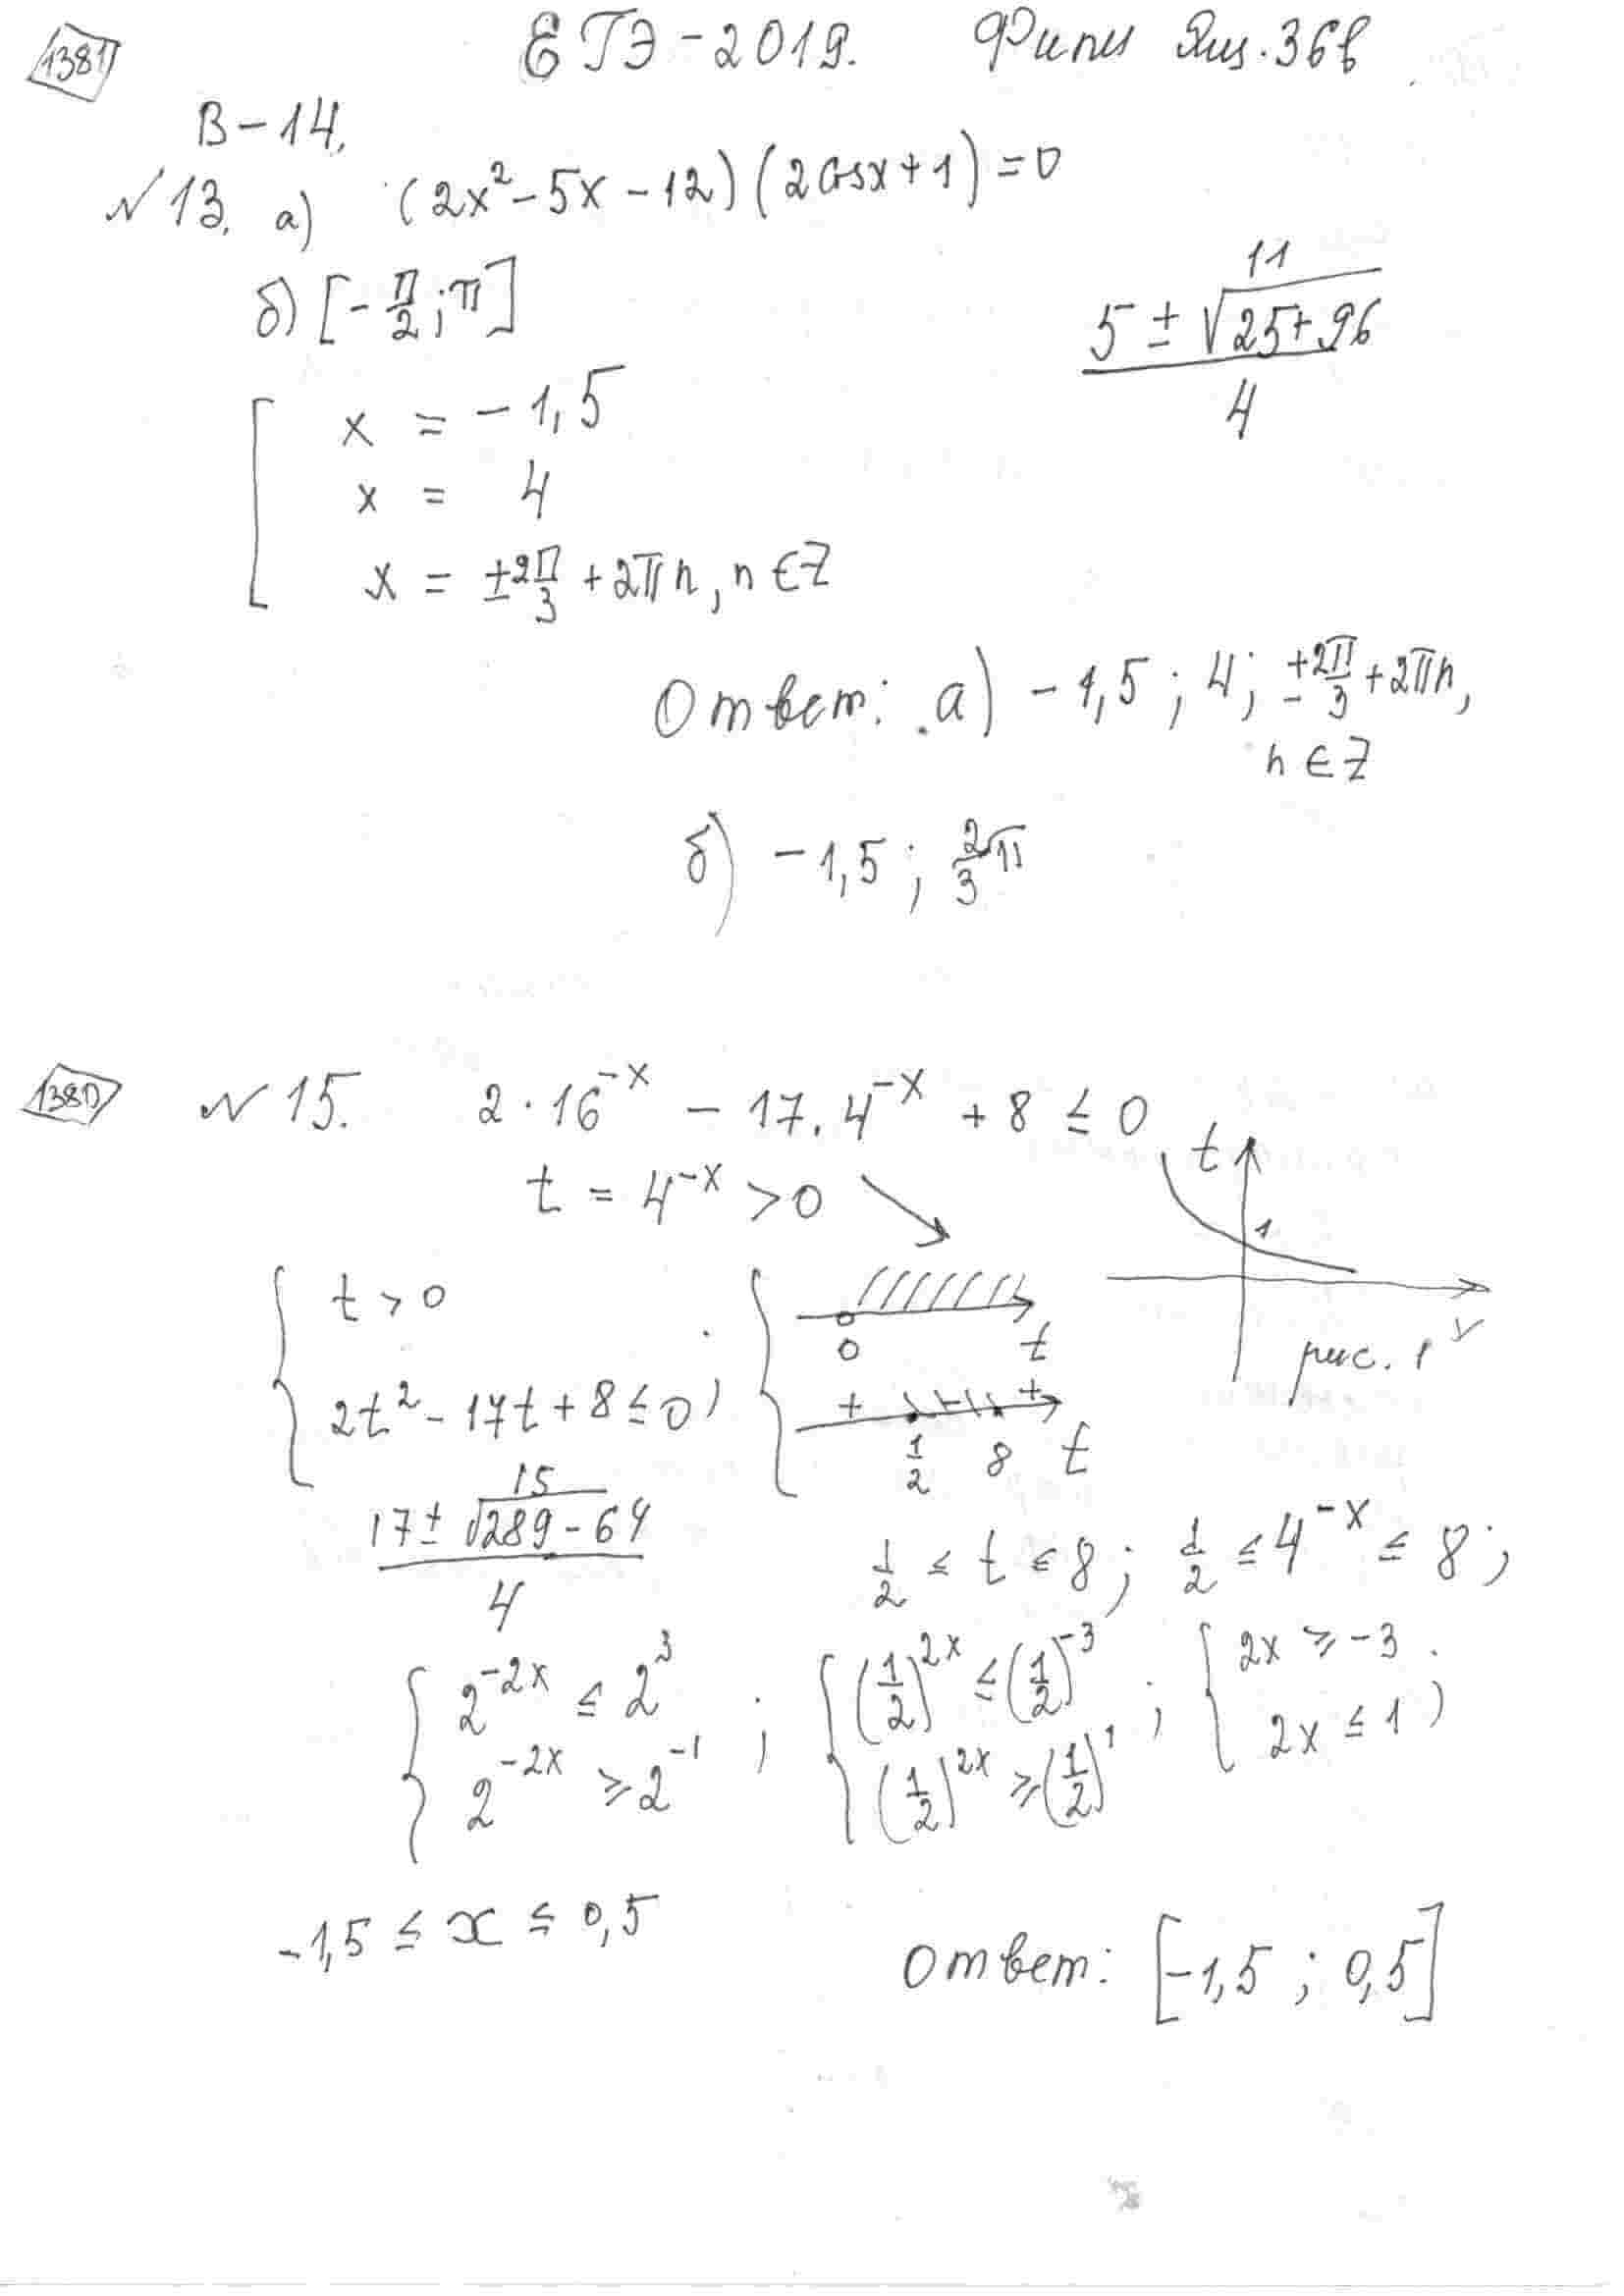 1381 ЕГЭ-2019. Фипи Ящ. 36в
В-14.
№13. а) (2x² - 5x - 12)(2cosx + 1) = 0
б) [-π/2; π]
11
(5 ± √(25+96))/4
x = -1,5
x = 4
x = ±2π/3 + 2πn, n ∈ Z
Ответ: а) -1,5; 4; ±2π/3 + 2πn,
n ∈ Z
б) -1,5; 2/3 π
1380 №15. 2·16^(-x) - 17·4^(-x) + 8 ≤ 0
t = 4^(-x) > 0
t
1
рис. 1
{ t > 0
2t² - 17t + 8 ≤ 0;
0 t
+ - +
1/2 8 t
15
(17 ± √(289-64))/4
1/2 ≤ t ≤ 8; 1/2 ≤ 4^(-x) ≤ 8;
{ 2^(-2x) ≤ 2^3 ; { (1/2)^(2x) ≤ (1/2)^(-3) ; { 2x ≥ -3
2^(-2x) ≥ 2^(-1) (1/2)^(2x) ≥ (1/2)^1 2x ≤ 1;
-1,5 ≤ x ≤ 0,5
Ответ: [-1,5; 0,5]